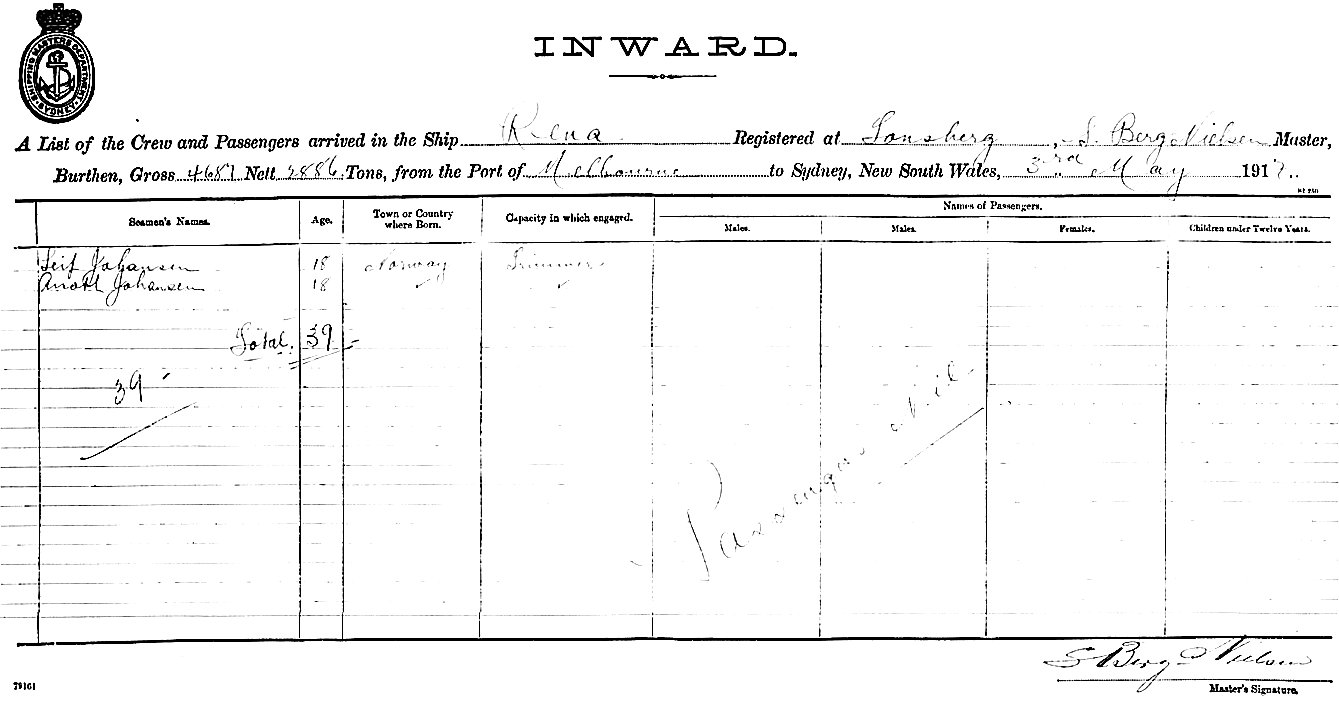 SHIPPING MASTERS DEPARTMENT SYDNEY
INWARD.
A List of the Crew and Passengers arrived in the Ship Rena Registered at Tonsberg, S. Berg Nielsen Master,
Burthen, Gross 4687 Nett 2886 Tons, from the Port of Melbourne to Sydney, New South Wales, 3rd May 1917.
Seamen's Names. Age. Town or Country where Born. Capacity in which engaged. Names of Passengers.
Males. Males. Females. Children under Twelve Years.
Leif Johansen 18 Norway Trimmer
Johansen 18 ✓ ✓
Total. 39
39
Passengers Nil.
S Berg Nielsen
Master's Signature.
79161